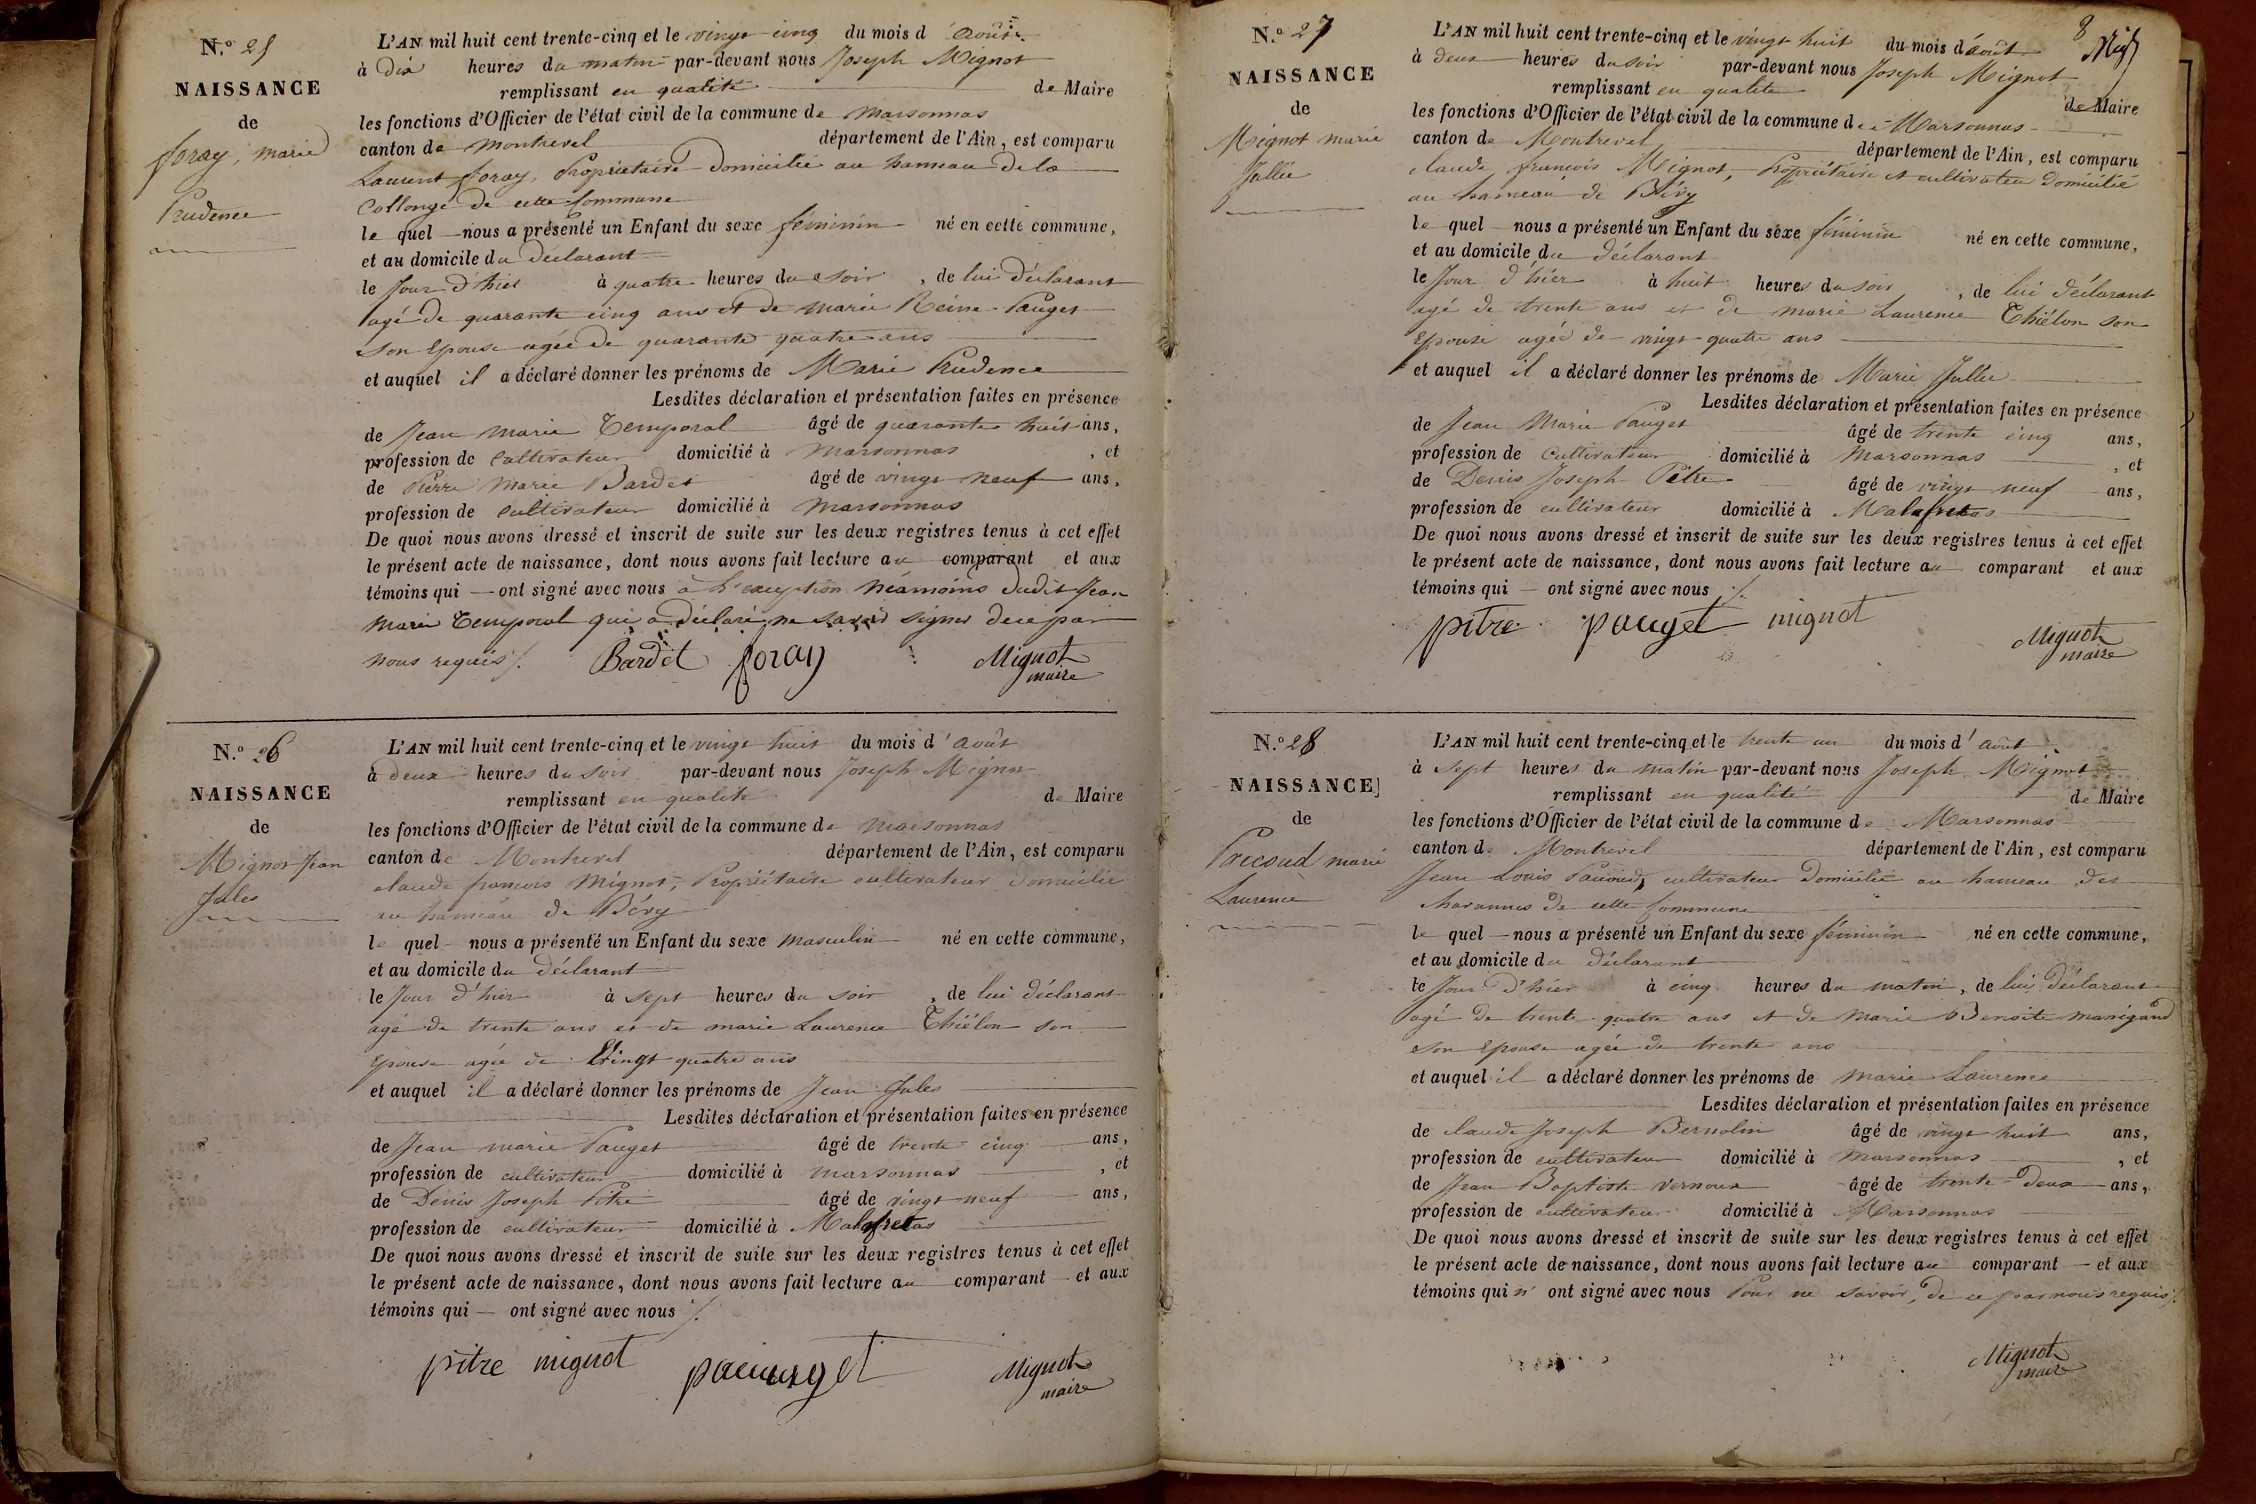 N.º 25
NAISSANCE
de
foray, marie
Prudence
L'AN mil huit cent trente-cinq et le vingt cinq du mois d'août
à dix heures du matin par-devant nous Joseph Mignot
remplissant en qualité de Maire
les fonctions d'Officier de l'état civil de la commune de marsonnas
canton de montrevel département de l'Ain, est comparu
Laurent foray, Propriétaire domicilié au hameau de la
Collonge de cette Commune
le quel nous a présenté un Enfant du sexe féminin né en cette commune,
et au domicile du déclarant
le Jour d'hier à quatre heures du soir, de lui déclarant
agé de quarante cinq ans et de marie Reine Pauget
son Epouse agée de quarante quatre ans
et auquel il a déclaré donner les prénoms de Marie Prudence
Lesdites déclaration et présentation faites en présence
de Jean marie Temporal âgé de quarante huit ans,
profession de cultivateur domicilié à marsonnas, et
de Pierre Marie Bardet âgé de vingt neuf ans,
profession de cultivateur domicilié à marsonnas
De quoi nous avons dressé et inscrit de suite sur les deux registres tenus à cet effet
le présent acte de naissance, dont nous avons fait lecture au comparant et aux
témoins qui ont signé avec nous à l'exception néamoins dudit Jean
marie Temporal qui a déclaré ne savoir signer de ce par
nous requis ./.
Bardet foray Mignot
maire
N.º 26
NAISSANCE
de
Mignot Jean
Jules
L'AN mil huit cent trente-cinq et le vingt huit du mois d'août
à deux heures du soir par-devant nous Joseph Mignot
remplissant en qualité de Maire
les fonctions d'Officier de l'état civil de la commune de marsonnas
canton de Montrevel département de l'Ain, est comparu
claude françois Mignot, Propriétaire cultivateur domicilié
au hameau de Bévy
le quel nous a présenté un Enfant du sexe masculin né en cette commune,
et au domicile du déclarant
le Jour d'hier à sept heures du soir, de lui déclarant
agé de trente ans et de marie Laurence Thiélon son
Epouse agée de Vingt quatre ans
et auquel il a déclaré donner les prénoms de Jean Jules
Lesdites déclaration et présentation faites en présence
de Jean marie Pauget âgé de trente cinq ans,
profession de cultivateur domicilié à marsonnas, et
de Denis Joseph Pitre âgé de vingt neuf ans,
profession de cultivateur domicilié à Malafretas
De quoi nous avons dressé et inscrit de suite sur les deux registres tenus à cet effet
le présent acte de naissance, dont nous avons fait lecture au comparant et aux
témoins qui ont signé avec nous ./.
pitre mignot Mignot
maire
8
N.º 27
NAISSANCE
de
Mignot marie
Jullie
L'AN mil huit cent trente-cinq et le vingt huit du mois d'août
à deux heures du soir par-devant nous Joseph Mignot
remplissant en qualité de Maire
les fonctions d'Officier de l'état civil de la commune de Marsonnas
canton de Montrevel département de l'Ain, est comparu
claude françois Mignot, Propriétaire et cultivateur domicilié
au hameau de Bévy
le quel nous a présenté un Enfant du sexe féminin né en cette commune,
et au domicile du déclarant
le Jour d'hier à huit heures du soir, de lui déclarant
agé de trente ans et de marie Laurence Thiélon son
Epouse agée de vingt quatre ans
et auquel il a déclaré donner les prénoms de Marie Jullie
Lesdites déclaration et présentation faites en présence
de Jean Marie Pauget âgé de trente cinq ans,
profession de cultivateur domicilié à Marsonnas, et
de Denis Joseph Pitre âgé de vingt neuf ans,
profession de cultivateur domicilié à Malafretas
De quoi nous avons dressé et inscrit de suite sur les deux registres tenus à cet effet
le présent acte de naissance, dont nous avons fait lecture au comparant et aux
témoins qui ont signé avec nous ./.
pitre pauget mignot Mignot
maire
N.º 28
NAISSANCE
de
marie
Laurence
L'AN mil huit cent trente-cinq et le trente un du mois d'août
à sept heures du matin par-devant nous Joseph Mignot
remplissant en qualité de Maire
les fonctions d'Officier de l'état civil de la commune de Marsonnas
canton de Montrevel département de l'Ain, est comparu
Jean Louis cultivateur domicilié au hameau des
de cette Commune
le quel nous a présenté un Enfant du sexe féminin né en cette commune,
et au domicile du déclarant
le Jour d'hier à cinq heures du matin, de lui déclarant
agé de trente quatre ans et de Marie Benoite manigand
son Epouse agée de trente ans
et auquel il a déclaré donner les prénoms de marie Laurence
Lesdites déclaration et présentation faites en présence
de claude Joseph Bernolin âgé de vingt huit ans,
profession de cultivateur domicilié à Marsonnas, et
de Jean Baptiste Vernoux âgé de trente deux ans,
profession de cultivateur domicilié à Marsonnas
De quoi nous avons dressé et inscrit de suite sur les deux registres tenus à cet effet
le présent acte de naissance, dont nous avons fait lecture au comparant et aux
témoins qui n'ont signé avec nous Pour ne savoir, de ce par nous requis ./.
Mignot
maire